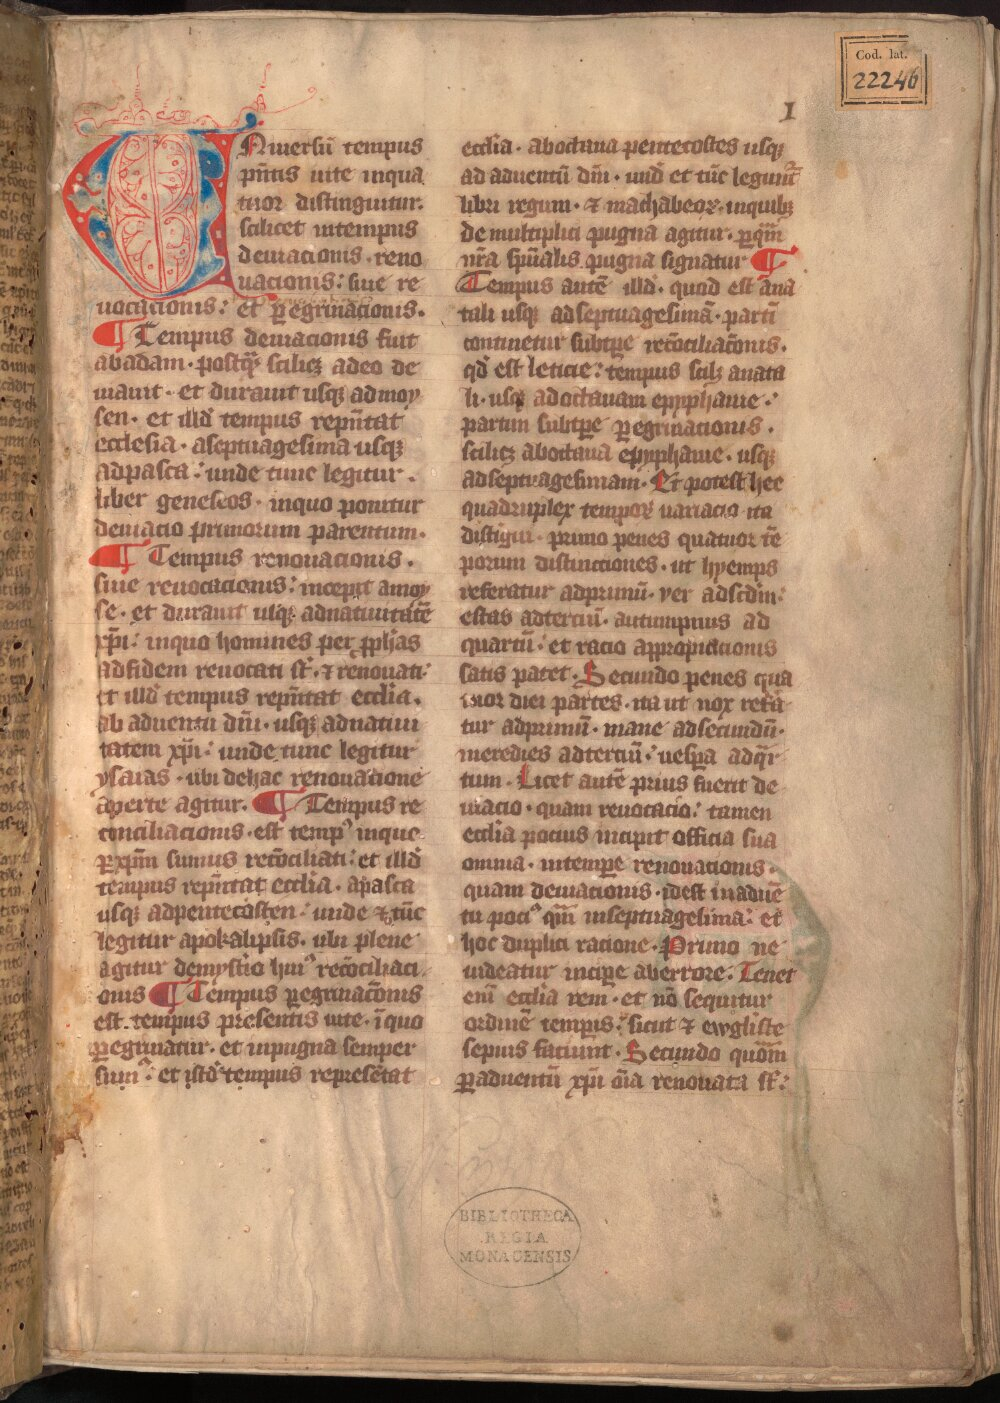 Cod. lat.
22246
1
Uniuersū tempus
pn̄tis uite inqua
tuor distinguitur.
scilicet intempus
deuiacionis. reno
uacionis: siue re
uocacionis: et ꝑegrinacionis.
¶ Tempus deuiacionis fuit
abadam. postꝗ̄ scilicꝫ adeo de
uiauit. et durauit usqꝫ admoy
sen. et illd̓ tempus repn̄tat
ecclesia. aseptuagesima usqꝫ
adpasca: unde tunc legitur.
liber geneseos. inquo ponitur
deuiacio primorum parentum.
¶ Tempus renouacionis.
siue reuocacionis: incepit amoy
se. et durauit usqꝫ adnatiuitatē
xp̄i: inquo homines per ꝓph̄as
adfidem reuocati st̄. ⁊ renouati:
et illd̓ tempus repn̄tat eccl̄ia.
ab aduentu dn̄i. usqꝫ adnatiui
tatem xp̄i: unde tunc legitur
ysaias. ubi dehac renouatione
aperte agitur. ¶ Tempus re
conciliacionis. est tempꝰ inquo
ꝑxp̄m sumus recōciliati: et illd̓
tempus repn̄tat eccl̄ia. apasca
usqꝫ adpentecosten: unde ⁊ tūc
legitur apokalipsis. ubi plene
agitur demyst̄io huiꝰ recōciliaci
onis ¶ Tempus ꝑegrinac̄onis
est. tempus presentis uite. īquo
ꝑegrinatur. et inpugna semper
sumꝰ: et istd̓ tempus represētat
eccl̄ia. aboctaua pentecostes usqꝫ
ad aduentū dn̄i. und̓ et tūc legunt̄
libri regum. ⁊ machabeoꝝ. inquibꝫ
de multiplici pugna agitur. ꝑquā
nr̄a sp̄ualis pugna signatur ¶
Tempus autē illd̓. quod est ana
tali usqꝫ adseptuagesimā. partī
continetur subtꝑe recōciliac̄onis.
qd̓ est leticie: tempus scilꝫ anata
li. usqꝫ adoctauam epyphanie:
partim subtꝑe ꝑegrinacionis.
scilicꝫ aboctaua epyphanie. usqꝫ
adseptuagesimam. Et potest hec
quadruplex tempoꝝ uariacio ita
distīgui. primo penes quatuor tē
porum distinctiones. ut hyemps
referatur adprimū. ver adscd̓m:
estas adterciū. autumpnus ad
quartū: et racio appropiacionis
satis patet. Secundo penes qua
tuor diei partes. ita ut nox referā
tur adprimū. mane adsecundū.
meredies adterciū: uesꝑa adqr̄
tum. Licet autē prius fuerit de
uiacio. quam reuocacio: tamen
eccl̄ia pocius incipit officia sua
omnia. intempe renouacionis.
quam deuiacionis. idest inaduē
tu pociꝰ ꝗm̄ inseptuagesima: et
hoc duplici racione. Primo ne
uideatur incipe aberrore. Tenet
eni̅ eccl̄ia rem. et nō sequitur
ordinē temꝑis: sicut ⁊ ewgliste
sepius faciunt. Secundo quōm
ꝑaduentū xp̄i om̄ia renouata st̄:
BIBLIOTHECA
REGIA
MONACENSIS